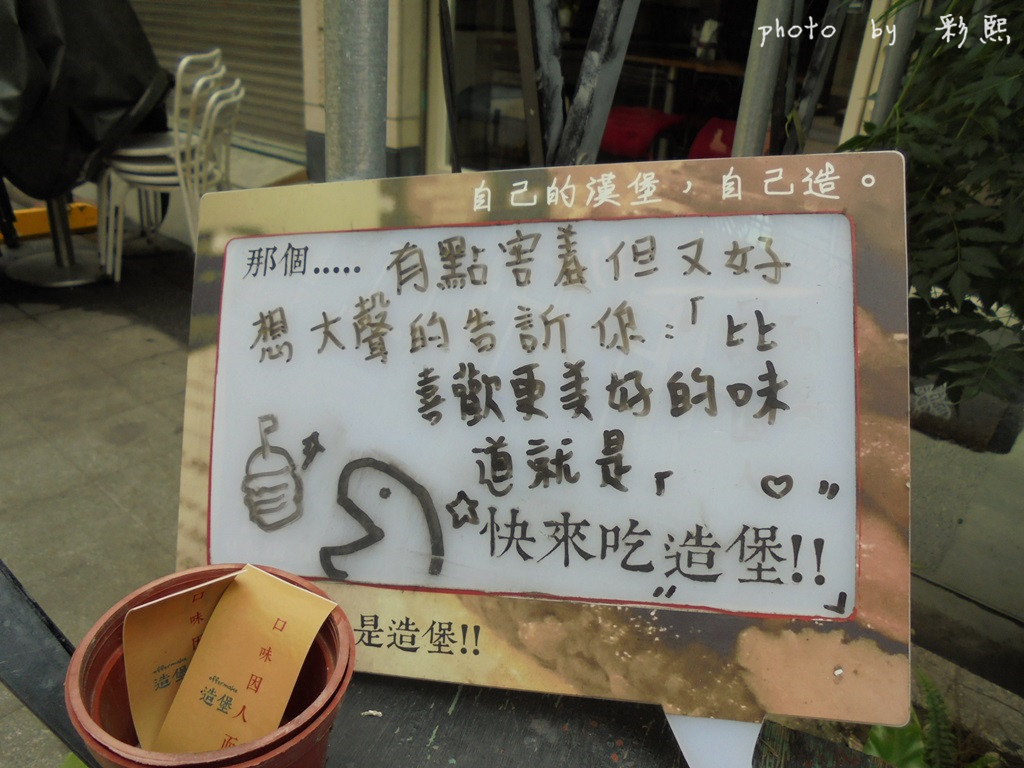 photo by 彩熙
自己的漢堡，自己造。
那個.....有點害羞但又好
想大聲的告訴你:「比
喜歡更美好的味
道就是「 ♡ 〃
快來吃〃造堡!!」
是造堡!!
口味因
造堡
口味因人而
afternoon
造堡